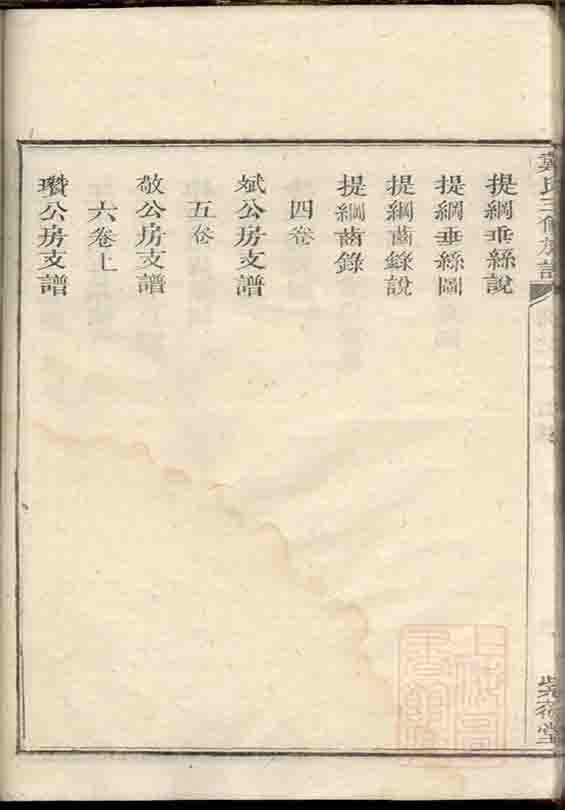 提綱垂絲說
提綱垂絲圖
提綱齒錄說
提綱齒錄
四卷
斌公房支譜
五卷
敬公房支譜
六卷上
瓚公房支譜
氏三修族譜
堂
上海圖書館藏